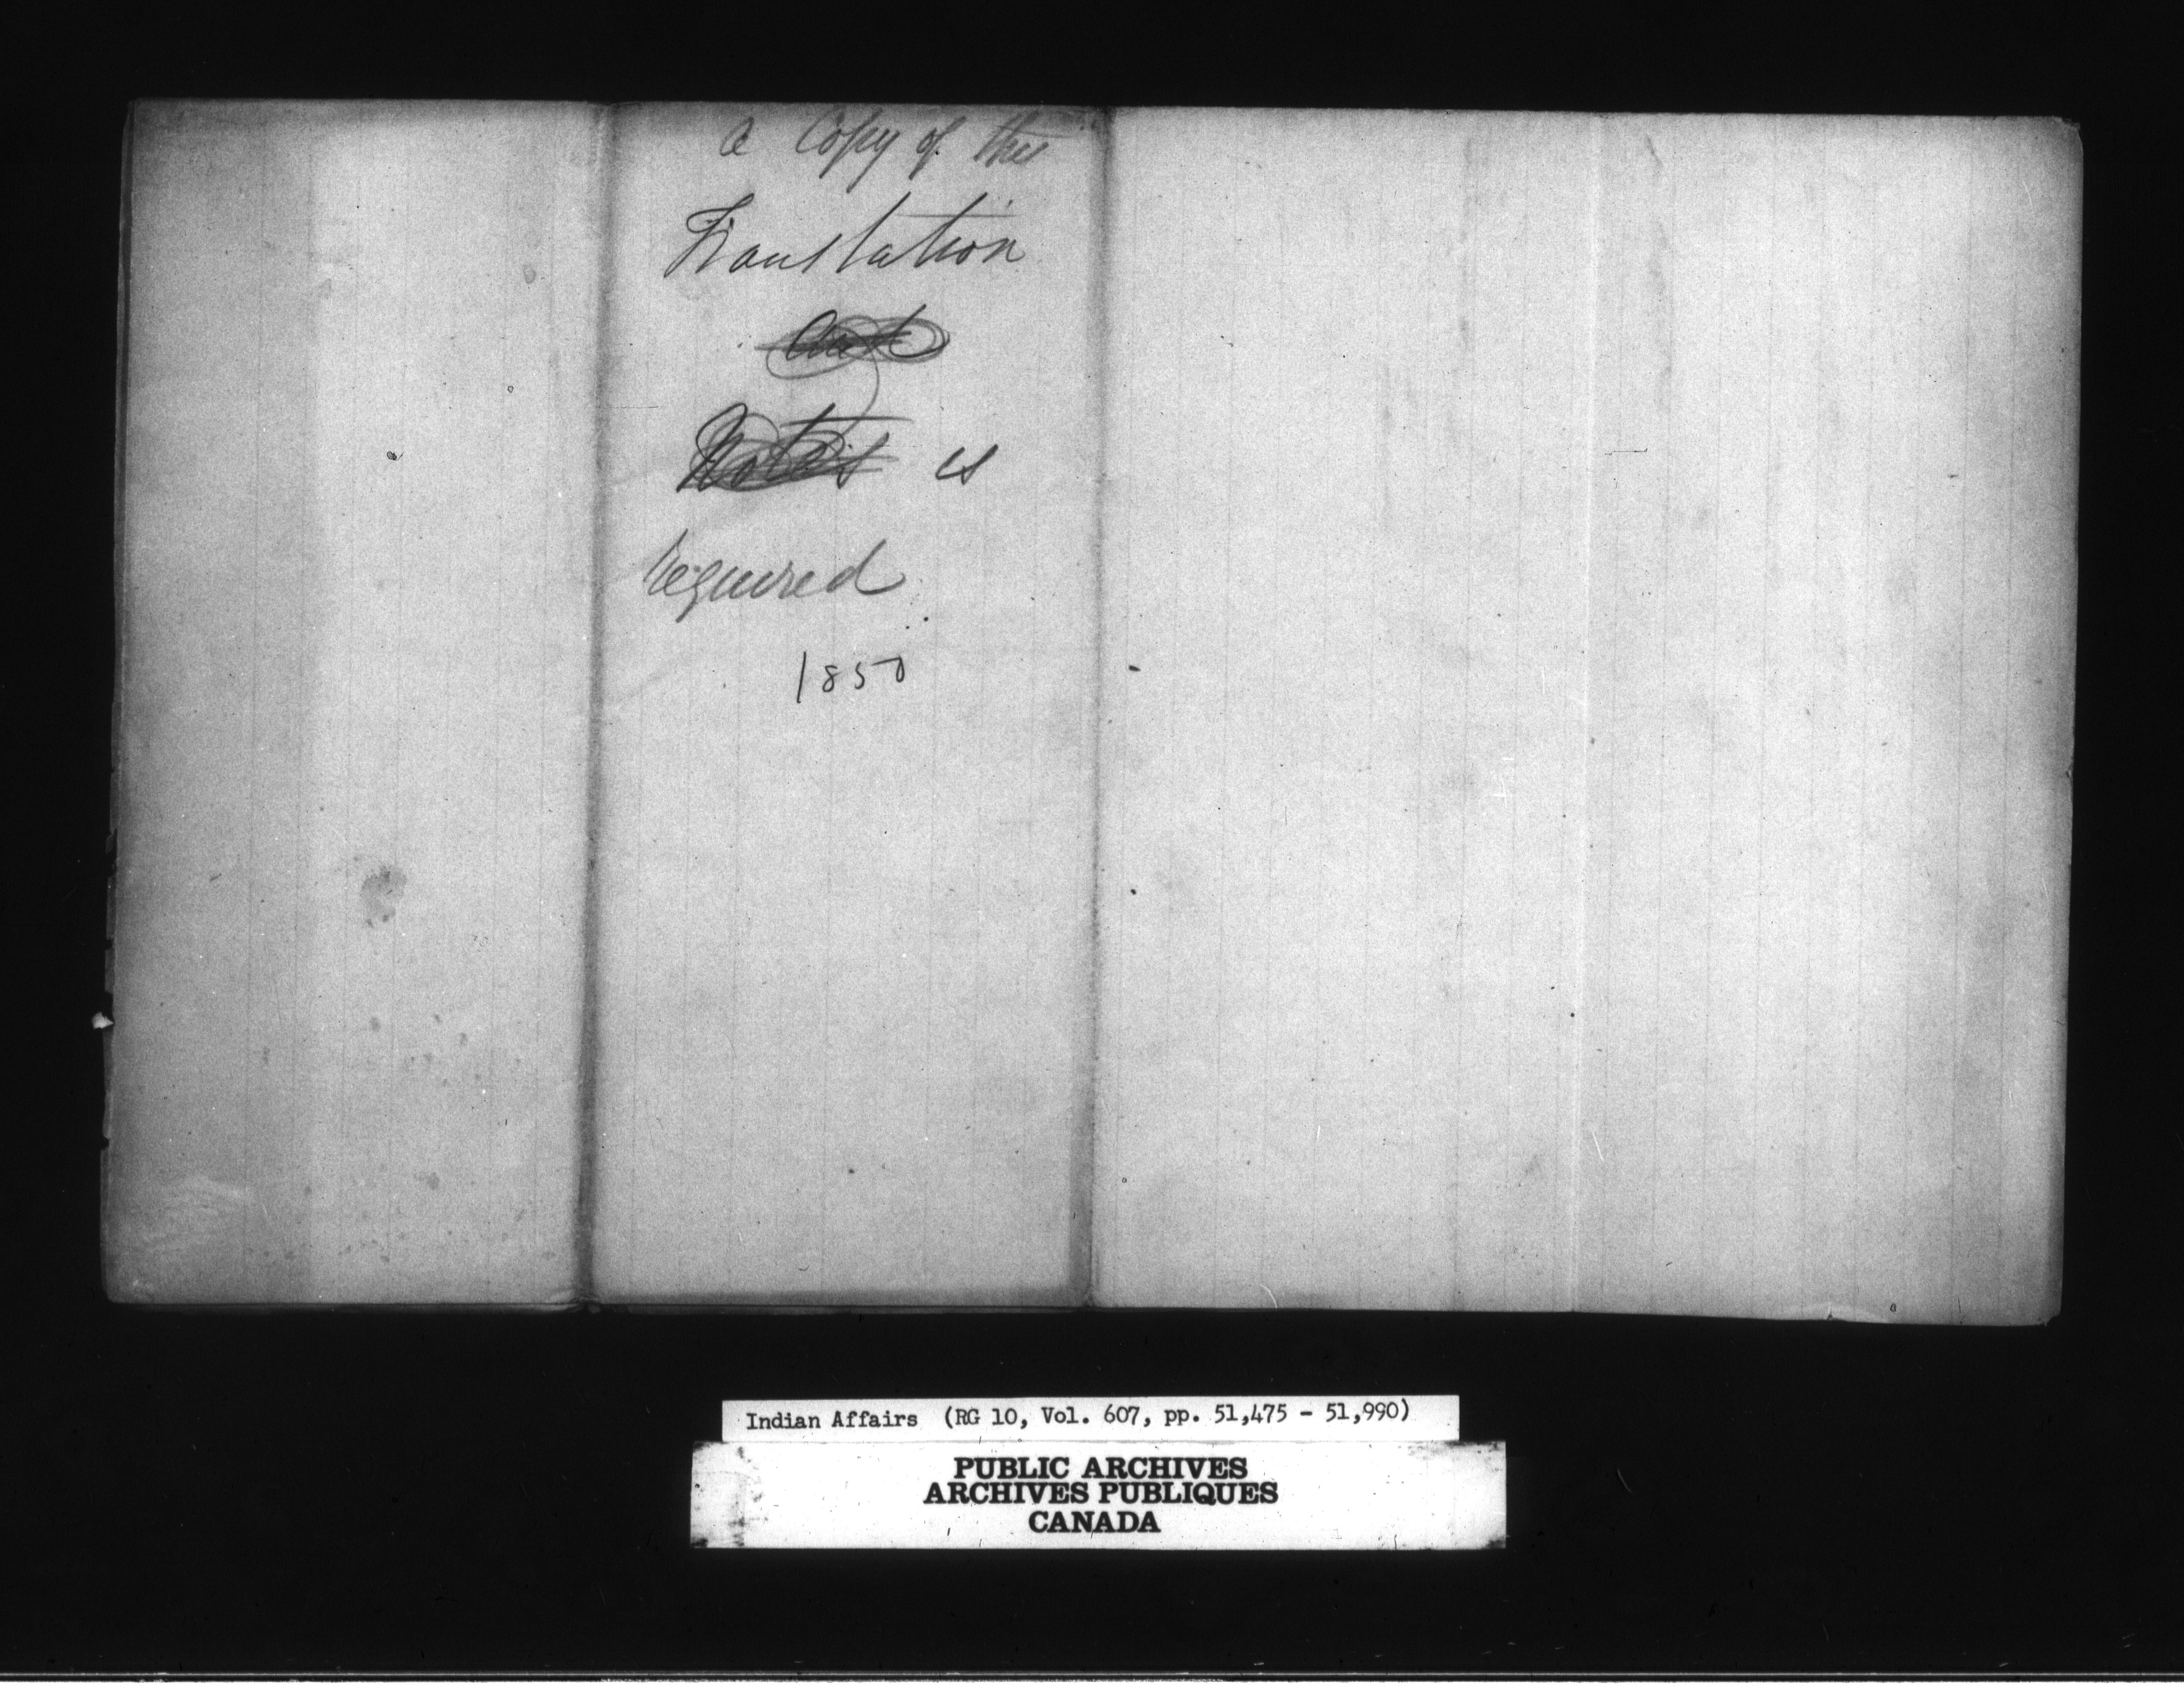 a Copy of this
Translation
and
Notes is
required
1850
Indian Affairs (RG 10, Vol. 607, pp. 51,475 - 51,990)
PUBLIC ARCHIVES
ARCHIVES PUBLIQUES
CANADA